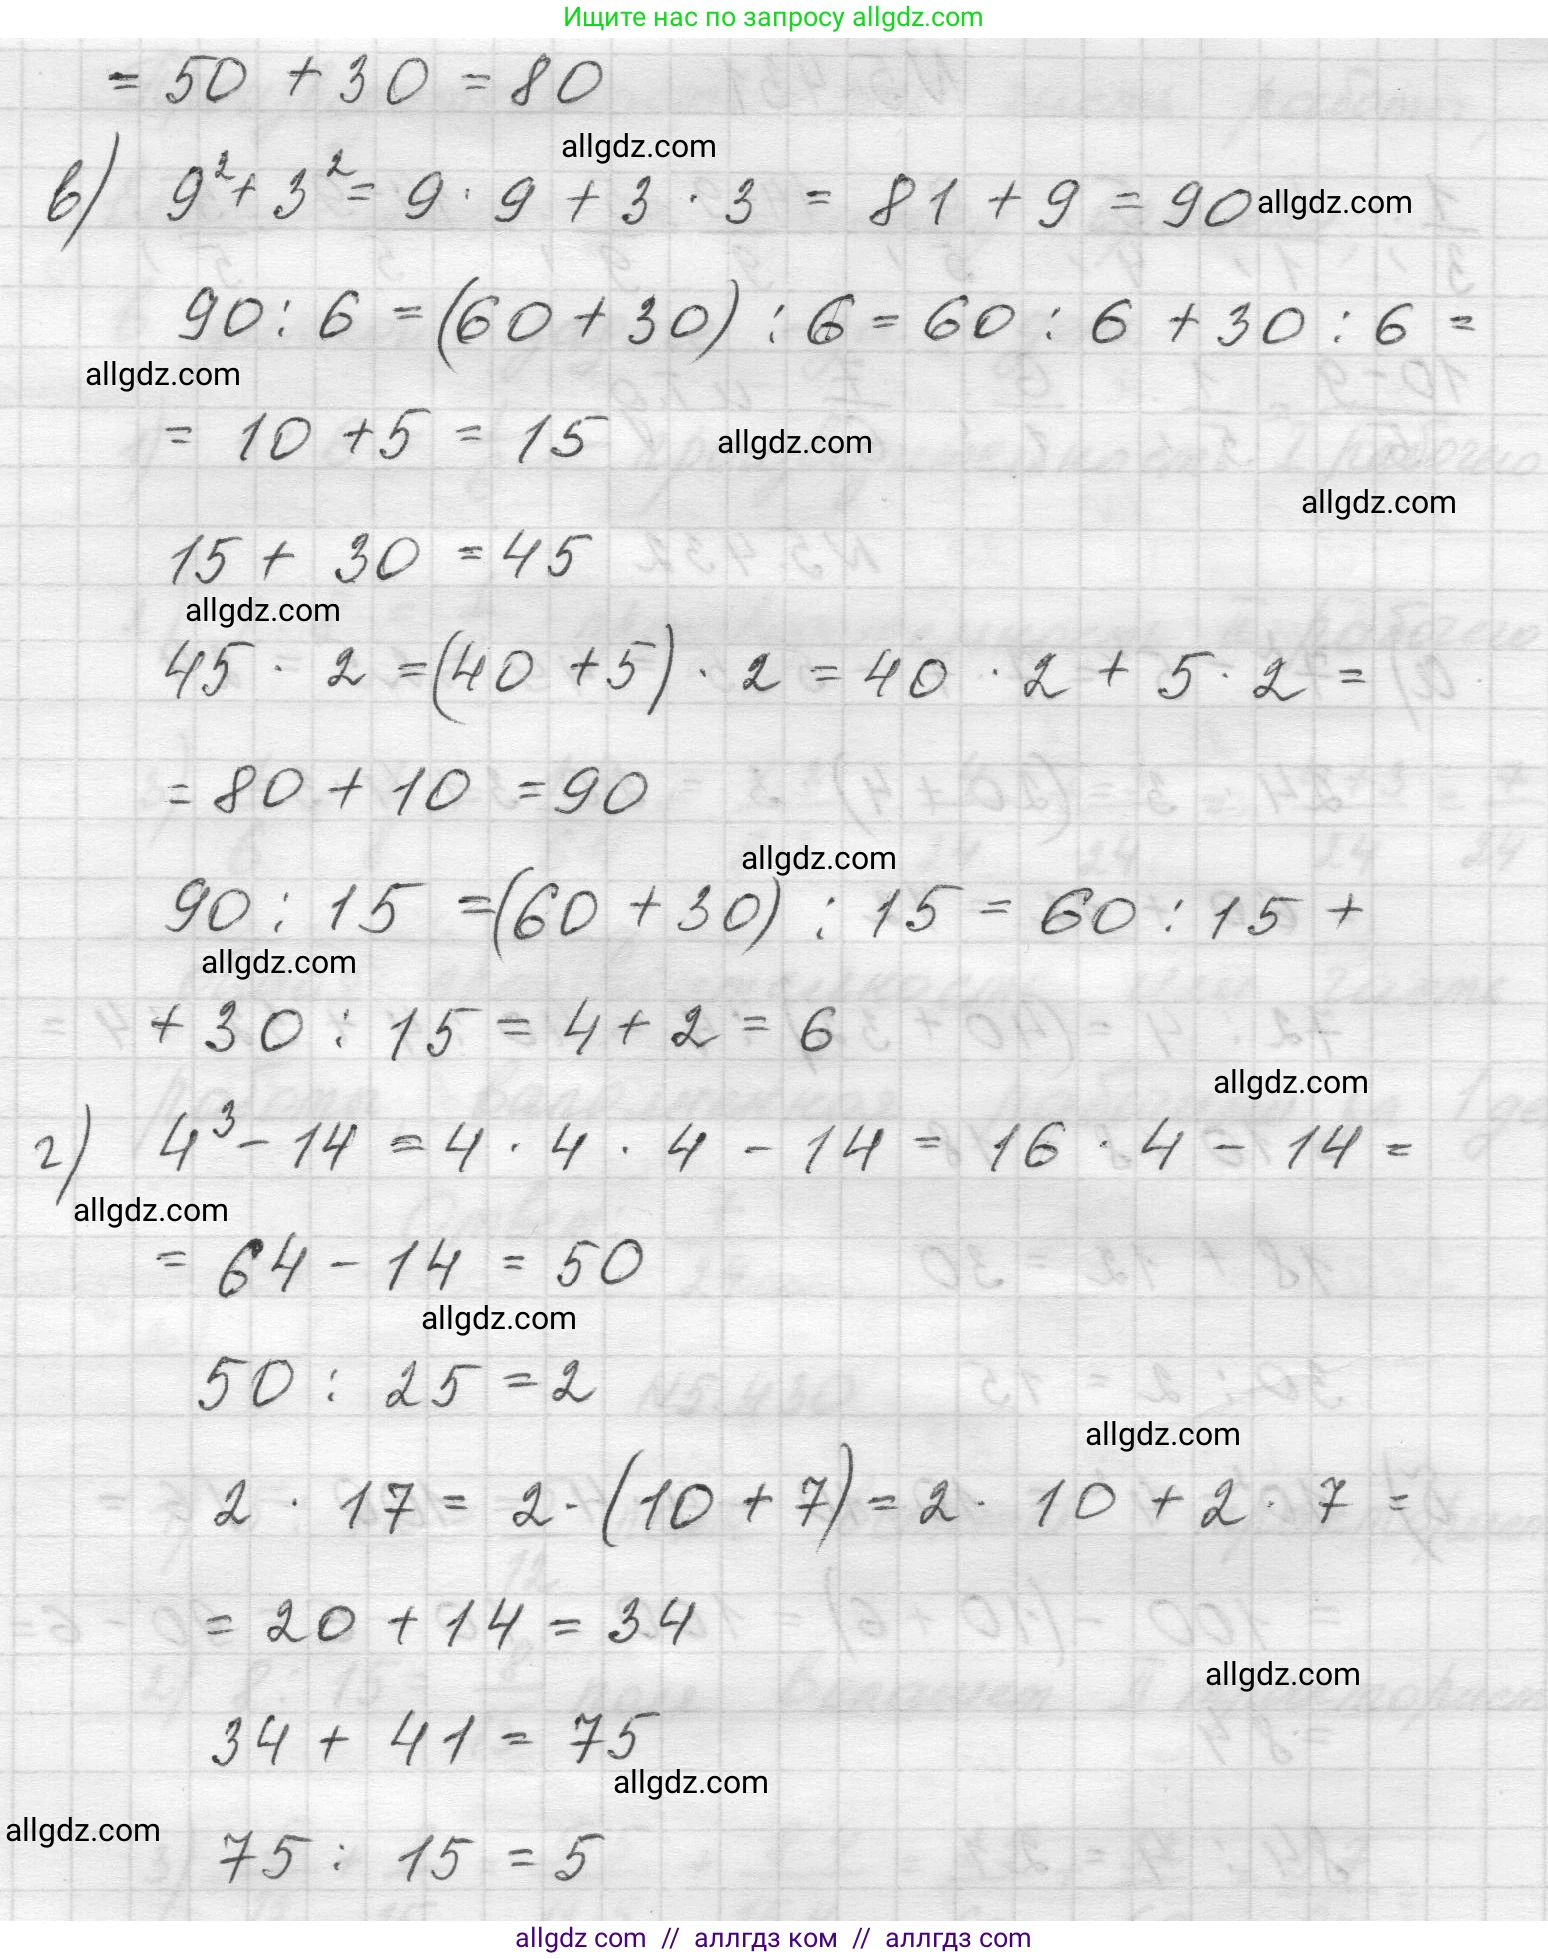 Ищите нас по запросу allgdz.com
= 50 + 30 = 80
allgdz.com
в) 9² + 3² = 9 · 9 + 3 · 3 = 81 + 9 = 90 allgdz.com
90 : 6 = (60 + 30) : 6 = 60 : 6 + 30 : 6 =
allgdz.com
= 10 + 5 = 15 allgdz.com
allgdz.com
15 + 30 = 45
allgdz.com
45 · 2 = (40 + 5) · 2 = 40 · 2 + 5 · 2 =
= 80 + 10 = 90
allgdz.com
90 : 15 = (60 + 30) : 15 = 60 : 15 +
allgdz.com
+ 30 : 15 = 4 + 2 = 6
allgdz.com
г) 4³ - 14 = 4 · 4 · 4 - 14 = 16 · 4 - 14 =
allgdz.com
= 64 - 14 = 50
allgdz.com
50 : 25 = 2
allgdz.com
2 · 17 = 2 · (10 + 7) = 2 · 10 + 2 · 7 =
= 20 + 14 = 34
allgdz.com
34 + 41 = 75
allgdz.com
allgdz.com
75 : 15 = 5
allgdz com // аллгдз ком // аллгдз com